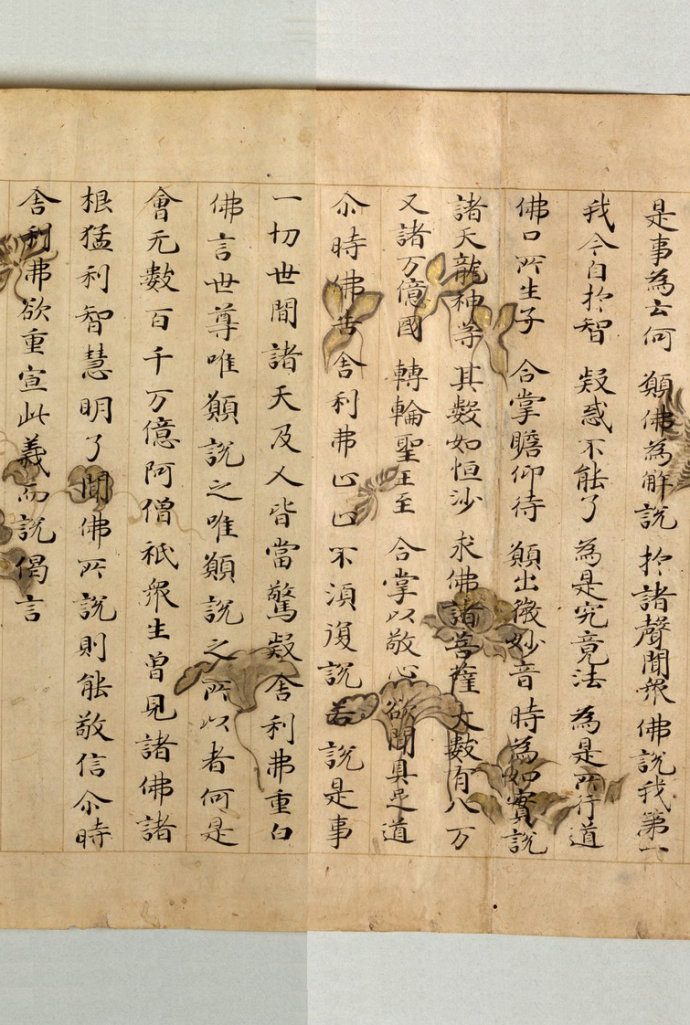 是事為云何 願佛為解說 扵諸聲聞衆 佛說我第一
我今自扵智 疑惑不能了 為是究竟法 為是所行道
佛口所生子 合掌瞻仰待 願出微妙音 時為如實說
諸天龍神等 其數如恒沙 求佛諸菩薩 大數有八万
又諸万億國 轉輪聖王至 合掌以敬心 欲聞具足道
尒時佛告舍利弗止止不須復說若說是事
一切世間諸天及人皆當驚疑舍利弗重白
佛言世尊唯願說之唯願說之所以者何是
會无數百千万億阿僧祇衆生曾見諸佛諸
根猛利智慧明了聞佛所說則能敬信尒時
舍利弗欲重宣此義而說偈言